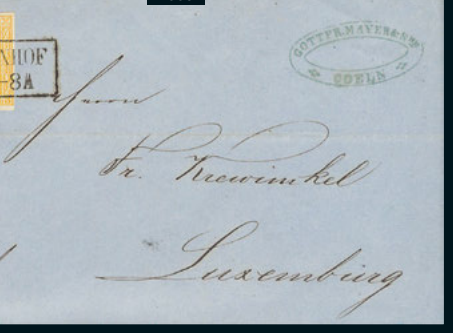 NHOF
-8A
GOTTFR. MAYER & Nffe
COELN
Herrn
Fr. Krewinkel
Luxemburg